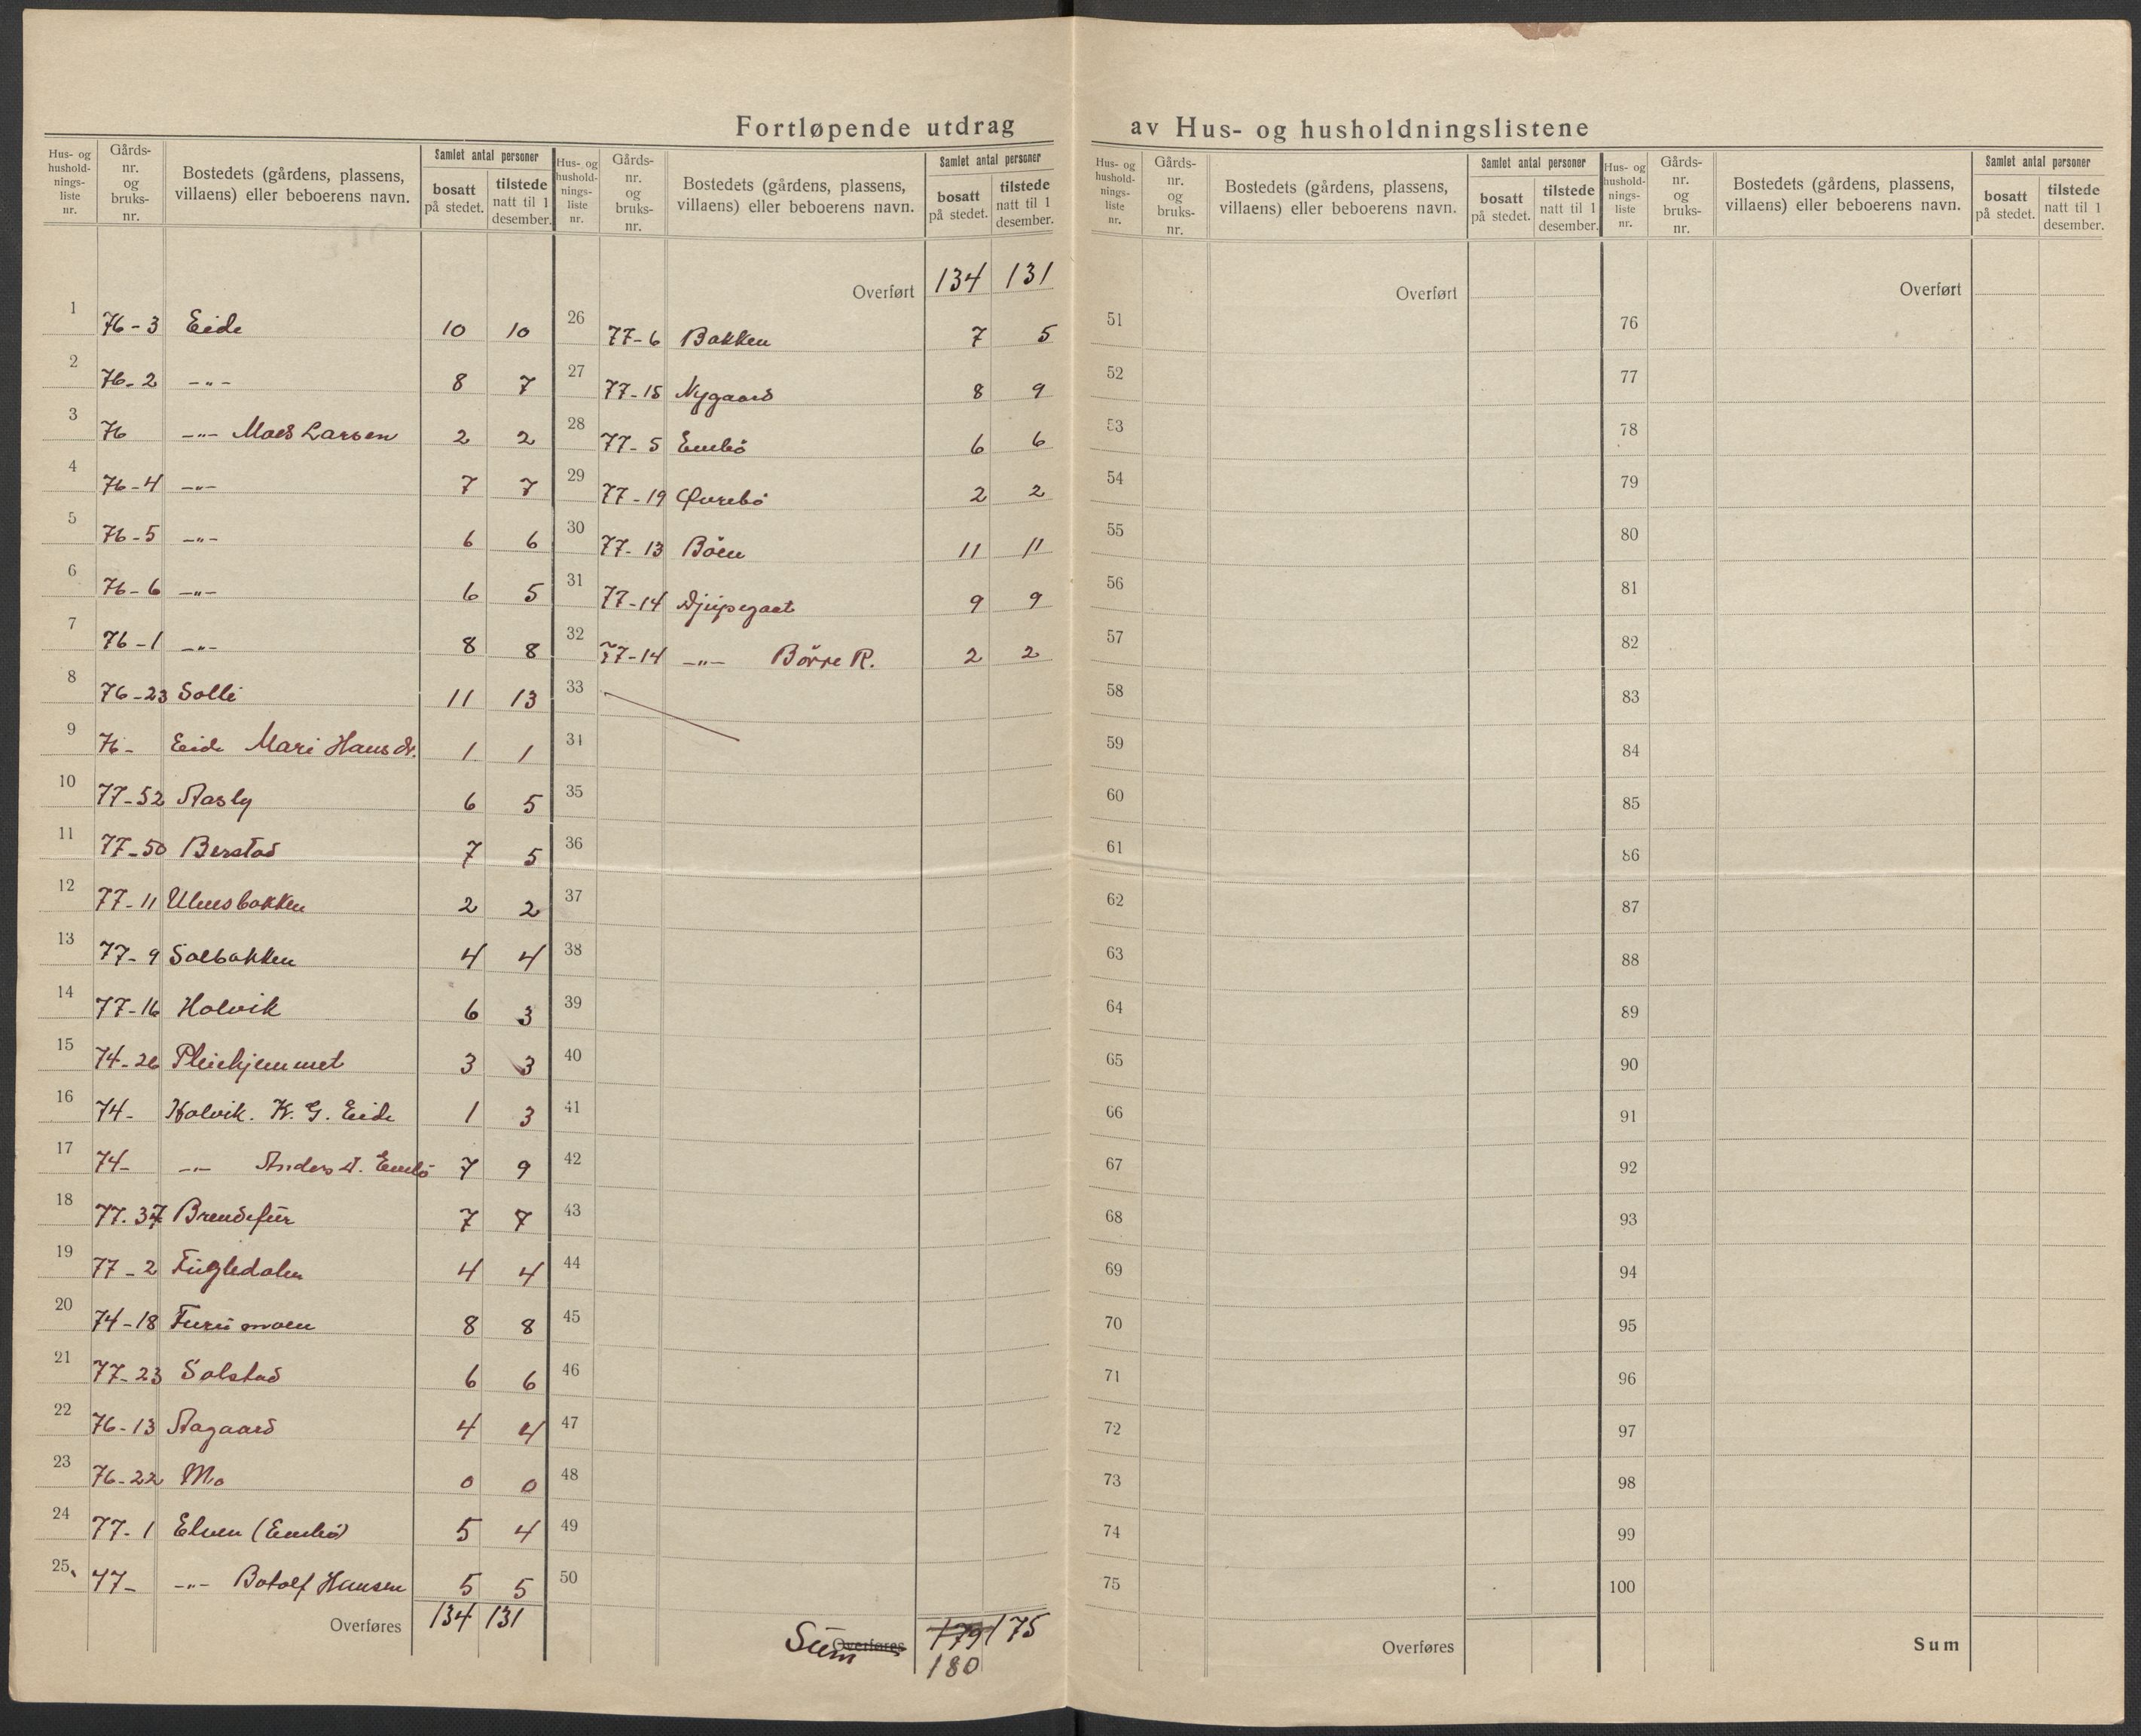 Fortløpende utdrag av Hus- og husholdningslistene
Hus- og hushold-nings-liste nr. | Gårds-nr. og bruks-nr. | Bostedets (gårdens, plassens, villaens) eller beboerens navn. | Samlet antal personer | bosatt på stedet. | tilstede natt til 1 desember.
1 76-3 Eide 10 10
2 76-2 -„- 8 7
3 76 -„- Mads Larsen 2 2
4 76-4 -„- 7 7
5 76-5 -„- 6 6
6 76-6 -„- 6 5
7 76-1 -„- 8 8
8 76-23 Solli 11 13
9 76- Eide Mari Hansdr. 1 1
10 77-52 Aasly 6 5
11 77-50 Berstad 7 5
12 77-11 Ulvesbakken 2 2
13 77-9 Solbakken 4 4
14 77-16 Holvik 6 3
15 74-26 Pleiehjemmet 3 3
16 74- Holvik. K. G. Eide 1 3
17 74- -„- Anders A. Emhö 7 9
18 77.37 Brendefür 7 7
19 77-2 Fügledalen 4 4
20 74-18 Furumoen 8 8
21 77-23 Solstad 6 6
22 76-13 Aagaard 4 4
23 76-22 Mo 0 0
24 77-1 Elven (Emhö) 5 4
25 77- -„- Botolf Hansen 5 5
Overføres 134 131
Hus- og hushold-nings-liste nr. | Gårds-nr. og bruks-nr. | Bostedets (gårdens, plassens, villaens) eller beboerens navn. | Samlet antal personer | bosatt på stedet. | tilstede natt til 1 desember.
Overført 134 131
26 77-6 Bakken 7 5
27 77-15 Nygaard 8 9
28 77-5 Emhö 6 6
29 77-19 Øvrebö 2 2
30 77-13 Böen 11 11
31 77-14 Djupegaat 9 9
32 77-14 -„- Börre R. 2 2
33
34
35
36
37
38
39
40
41
42
43
44
45
46
47
48
49
50
Overføres Süm 179 175
180
Hus- og hushold-nings-liste nr. | Gårds-nr. og bruks-nr. | Bostedets (gårdens, plassens, villaens) eller beboerens navn. | Samlet antal personer | bosatt på stedet. | tilstede natt til 1 desember.
Overført
51
52
53
54
55
56
57
58
59
60
61
62
63
64
65
66
67
68
69
70
71
72
73
74
75
Overføres
Hus- og hushold-nings-liste nr. | Gårds-nr. og bruks-nr. | Bostedets (gårdens, plassens, villaens) eller beboerens navn. | Samlet antal personer | bosatt på stedet. | tilstede natt til 1 desember.
Overført
76
77
78
79
80
81
82
83
84
85
86
87
88
89
90
91
92
93
94
95
96
97
98
99
100
Sum